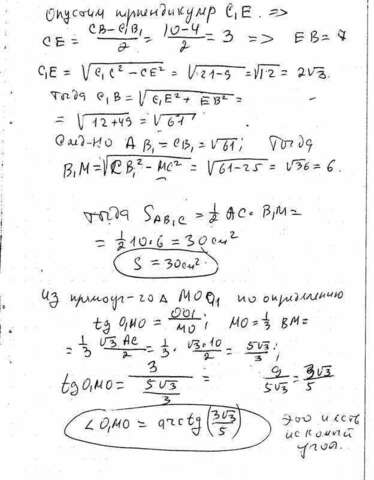 Опустим перпендикуляр C₁E. =>
CE = (CB - C₁B₁)/2 = (10-4)/2 = 3 => EB = 7
C₁E = √(C₁C² - CE²) = √(21-9) = √12 = 2√3.
Тогда C₁B = √(C₁E² + EB²) =
= √(12+49) = √61
След-но AB₁ = CB₁ = √61; Тогда
B₁M = √(CB₁² - MC²) = √(61-25) = √36 = 6.
Тогда S_AB₁C = ½ AC · B₁M =
= ½ 10·6 = 30 см²
S = 30 см².
Из прямоуг-го Δ MOO₁ по определению
tg O₁MO = OO₁/MO; MO = ⅓ BM =
= ⅓ √3 AC/2 = ⅓ · √3·10/2 = 5√3/3;
tg O₁MO = 3/(5√3/3) = 9/(5√3) = 3√3/5
∠O₁MO = arctg (3√3/5)
Это и есть
искомый
угол..